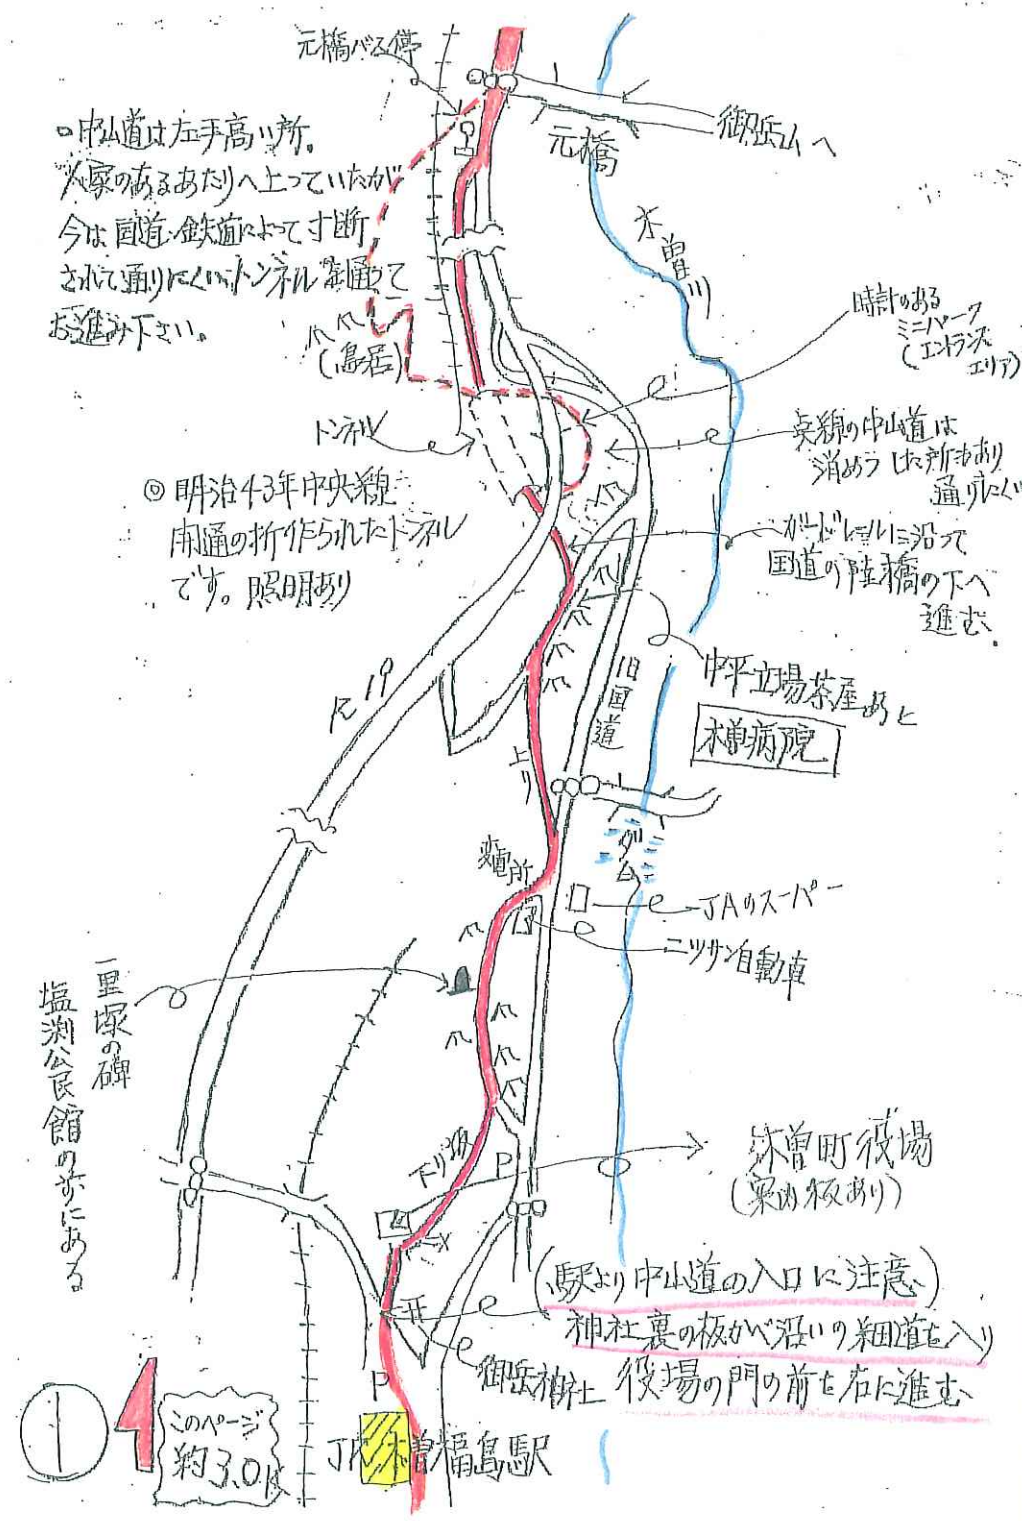 元橋バス停
御岳山へ
元橋
○中山道は左手高い所。
人家のあるあたりへ上っていたが
今は国道・鉄道によって寸断
されて通りにくいトンネルを通って
お進み下さい。
木曽川
時計のある
ミニパーク
(エントランス
エリア)
(鳥居)
トンネル
点線の中山道は
消めつした所もあり
通りにくい
◎明治43年中央線
開通の折作られたトンネル
です。照明あり
ガードレールに沿って
国道の陸橋の下へ
進む、
R19
旧国道
中平立場茶屋あと
木曽病院
上り
ダム
変電所
JAのスーパー
ニッサン自動車
一里塚の碑
塩渕公民館の歩にある
下り坂
P
木曽町役場
(案内板あり)
(駅より中山道の入口に注意、)
神社裏の板かべ沿いの細道を入り
役場の門の前を右に進む、
御岳神社
P
JR木曽福島駅
1
このページ
約3.0K